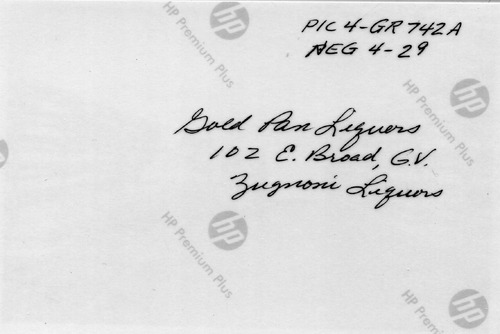 PIC 4-GR 742A
NEG 4-29
Gold Pan Liquors
102 E. Broad, G.V.
Zugnoni Liquors
HP Premium Plus
HP Premium Plus
HP Premium Plus
HP Premium Plus
HP Premium Plus